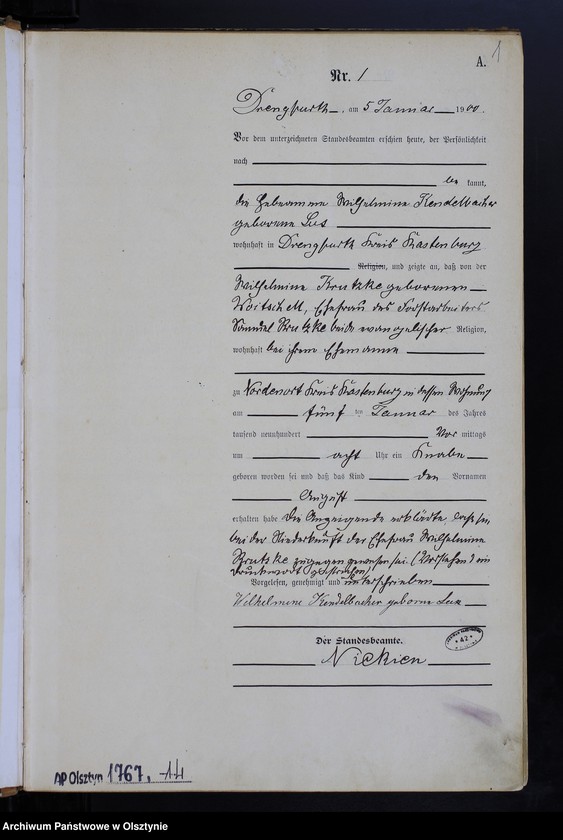 A. 1
Nr. 1
Drengfurth, am 5 Januar 1900
Vor dem unterzeichneten Standesbeamten erschien heute, der Persönlichkeit
nach
be kannt,
die Hebeamme Wilhelmine Kendelbacher
geborene
wohnhaft in Drengfurth Kreis Rastenburg
Religion, und zeigte an, daß von der
Wilhelmine Krutzke geborenen
Ehefrau des Forstarbeiters
Samuel Krutzke beide evangelischer Religion,
wohnhaft bei ihrem Ehemanne
zu Nordenort Kreis Rastenburg in dessen Wohnung
am fünf ten Januar des Jahres
tausend neunhundert Vor mittags
um acht Uhr ein Knabe
geboren worden sei und daß das Kind den Vornamen
August
erhalten habe Die Anzeigende erklärte, daß sie
bei der Niederkunft der Ehefrau Wilhelmine
Krutzke zugegen gewesen sei. (Vorstehend ein
Druckwort gestrichen)
Vorgelesen, genehmigt und unterschrieben
Wilhelmine Kendelbacher geborne
Der Standesbeamte.
Nickien
AP Olsztyn 1767, 14
Archiwum Państwowe w Olsztynie